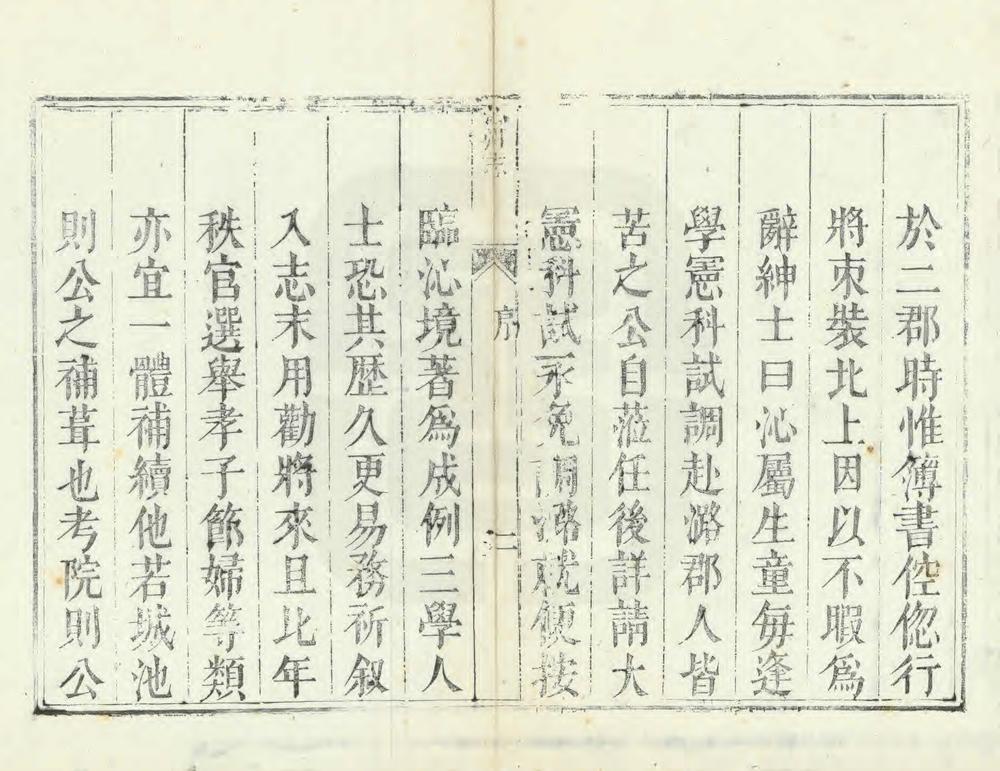 於二郡時惟簿書倥偬行
將朿裝北上因以不暇爲
辭紳士曰沁屬生童每逢
學憲科試調赴潞郡人皆
苦之公自蒞任後詳請大
憲科試永免調潞就便按
州志
序
二
臨沁境著爲成例三學人
士恐其歷久更易務祈叙
入志末用勸將來且比年
秩官選舉孝子節婦等類
亦宜一體補續他若城池
則公之補葺也考院則公